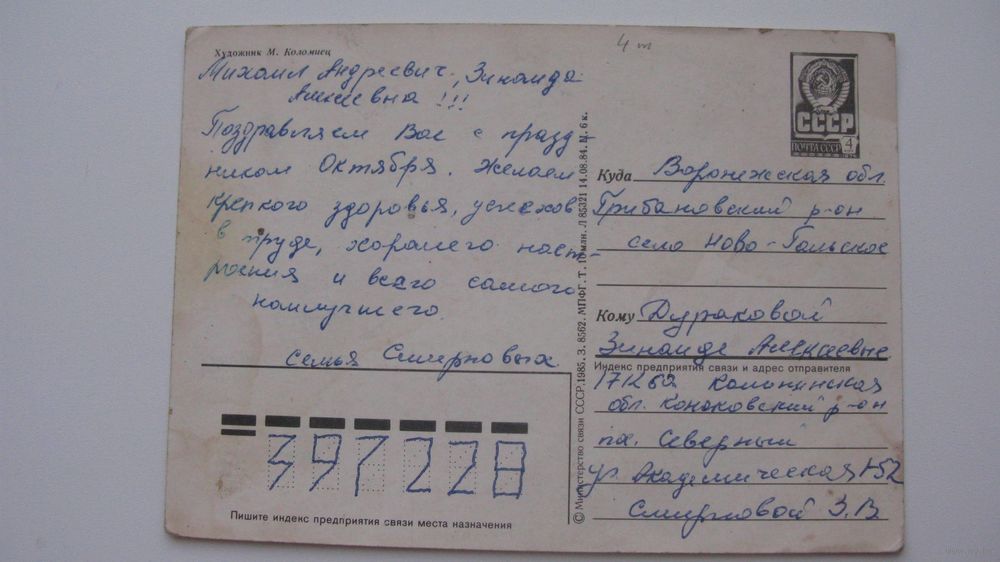 Художник М. Коломнец
4 т
Михаил Андреевич, Зинаида
Алексевна !!!
Поздравляем Вас с празд-
ником Октября. Желаем
крепкого здоровья, успехов
в труде, хорошего наст-
роения и всего самого
наилучшего.
семья Смирновых
397228
Пишите индекс предприятия связи места назначения
© Министерство связи СССР. 1985. З. 8562. МПФГ. Т. 10 млн. Л 85321 14.08.84. Ц. 6 к.
СССР
ПОЧТА СССР 4
Куда Воронежская обл.
Грибановский р-он
село Ново-Гольское
Кому Дураковой
Зинаиде Алексеевне
Индекс предприятия связи и адрес отправителя
171262 Калининская
обл. Конаковский р-он
пх. Северный
ул. Академическая 1-52
Смирновой З.В.